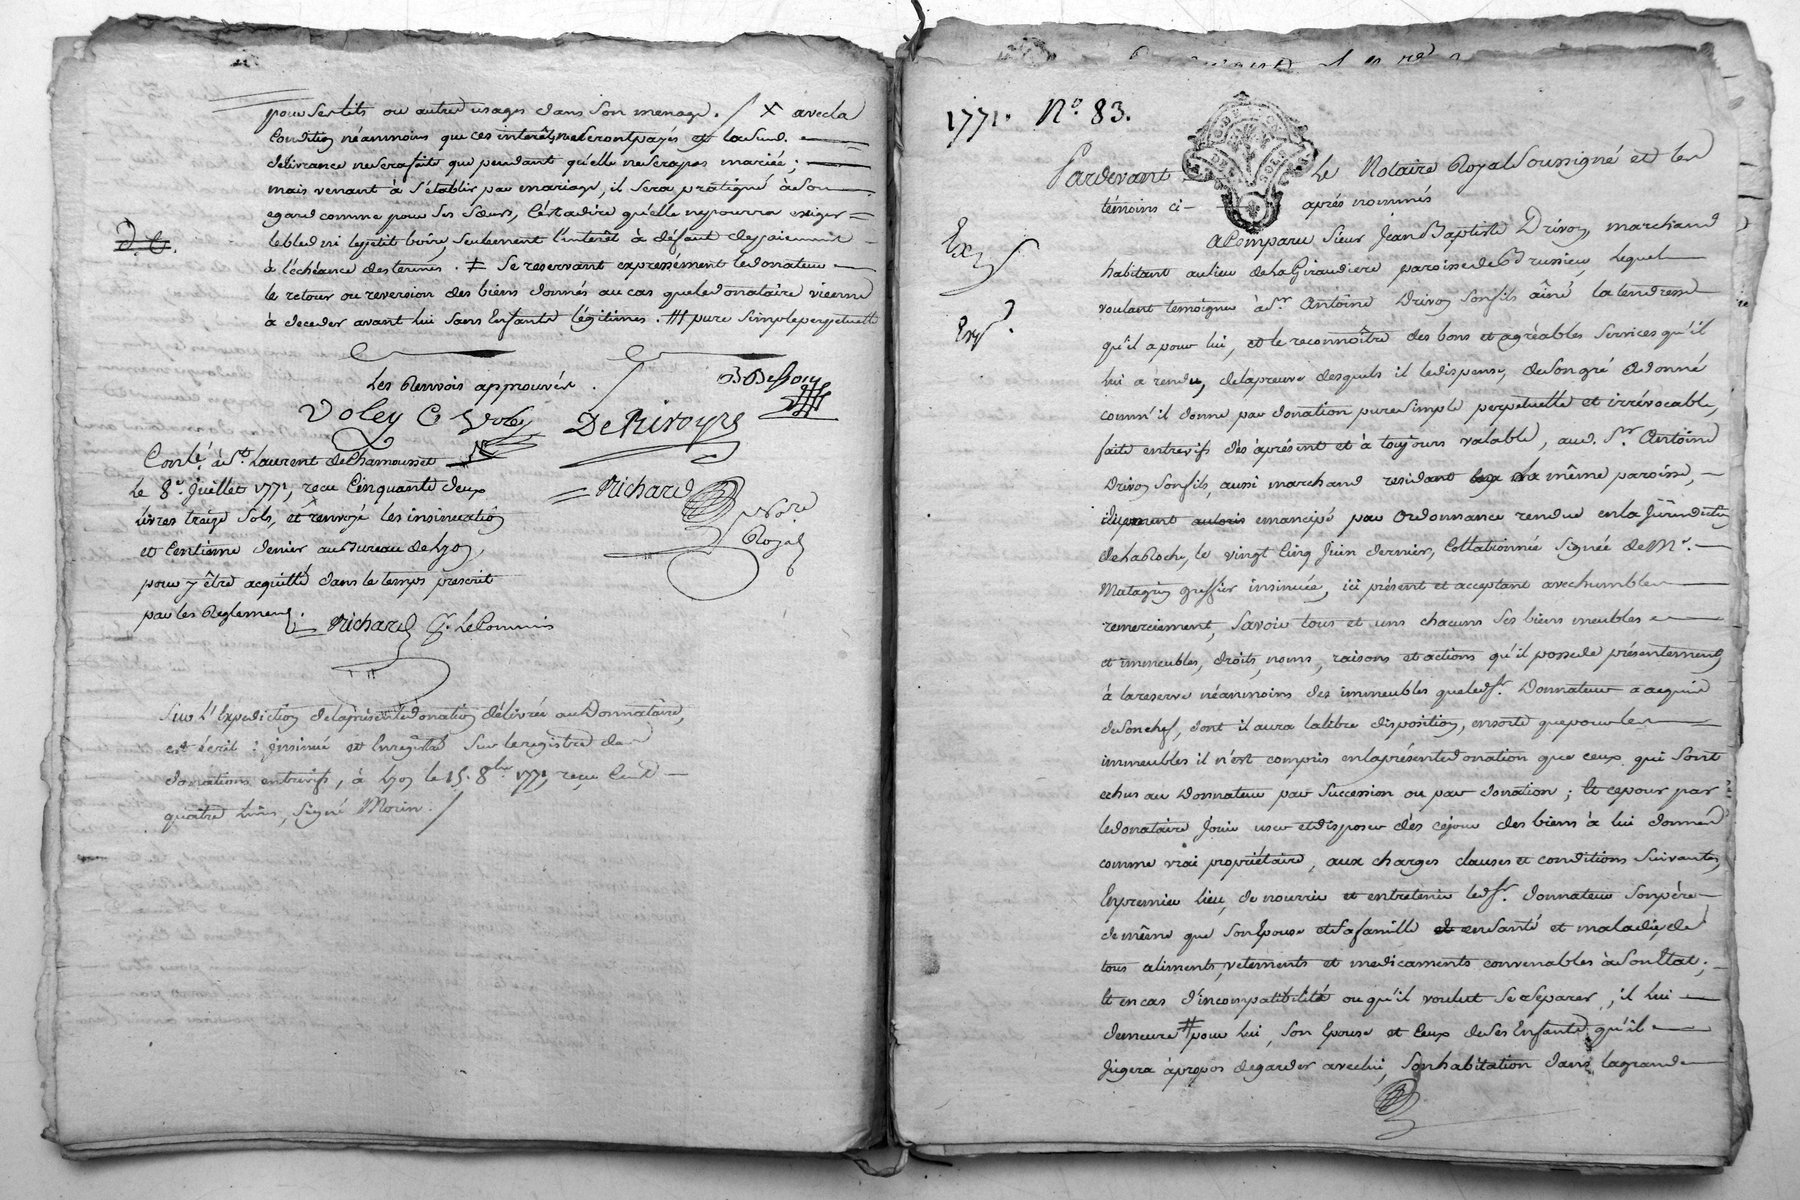 pour ses lits ou autre usages dans son menage. / X avec la
Condition néanmoins que ces interêts ne seront payés et lad.
delivrance ne sera faite que pendant qu'elle ne sera pas mariée;
mais venant à s'établir par mariage, il sera pratiqué à son
egard comme pour ses sœurs, C'est a dire qu'elle ne pourra exiger
le bled ni le petit boire, seulement l'interêt à défaut de paiement
à l'échéance des termes. ‡ se reservant expressément le donateur
le retour ou reversion des biens donnés au cas que le donataire vienne
à deceder avant lui sans Enfants légitimes. pure simple perpetuelle
Les Renvois approuvés.
Voley C Voley
Richard
Nore
Royal
Conlé à St. Laurent de Chamousset
Le 8e. Juillet 1771, recu Cinquante deux
livres treize sols, et renvoyé les insinuation
et Centieme denier au Bureau de Lyon,
pour y être acquitté dans le temps prescrit
par les Reglements. Richard Le Commis
Sur l'Expedition de la présente donation délivrée au Donnataire,
est écrit: insinué et Enregistré sur le registre des
donations entrevifs, à Lyon le 15. 8bre 1771, reçu Cent
quatre livres, signé Morin. /
1771. No. 83.
Pardevant Le Notaire Royal soussigné et les
témoins ci- après nommés
a Comparu sieur Jean Baptiste Drivon, marchand
habitant au lieu de la Giraudiere paroisse de Brussieu, lequel
voulant temoigner à Sr. Antoine Drivon son fils aîné la tendresse
qu'il a pour lui, et le reconnoître des bons et agréables services qu'il
lui a rendu, de la preuve desquels il le dispense, de son gré a donné
comm'il donne par donation pure simple perpetuelle et irrévocable,
faite entrevifs dès àprésent et à toujours valable, aud. Sr. Antoine
Drivon son fils, aussi marchand residant la même paroisse,
emancipé par Ordonnance rendue en la Jurisdiction
de la Roche, le vingt Cinq Juin dernier, Collationnée signée de Me.
Matagrin greffier insinuée, ici présent et acceptant avec humble
remerciement, savoir tous et uns chacuns ses biens meubles
et immeubles, droits, noms, raisons et actions qu'il possede présentement
à la reserve néanmoins des immeubles que led. Sr. Donnateur a acquis
de son chef, dont il aura la libre disposition, ensorte que pour les
immeubles il n'est compris en la présente donation que ceux qui sont
echus au Donnateur par succession ou par donation; Et ce pour par
le donataire Jouir user et disposer dès ce jour des biens à lui donnés
comme vrai propriétaire, aux charges clauses et conditions suivantes,
En premier lieu, de nourrir et entretenir led. Sr. donnateur son père
de même que son Epouse et sa famille en santé et maladie, de
tous aliments, vetements et medicaments convenables à son Etat;
Et en cas d'incompatibilité ou qu'il voulut se separer, il lui
demeure pour lui, son Epouse et Ceux de ses Enfants qu'il
Jugera àpropos de garder avec lui, son habitation dans la grande